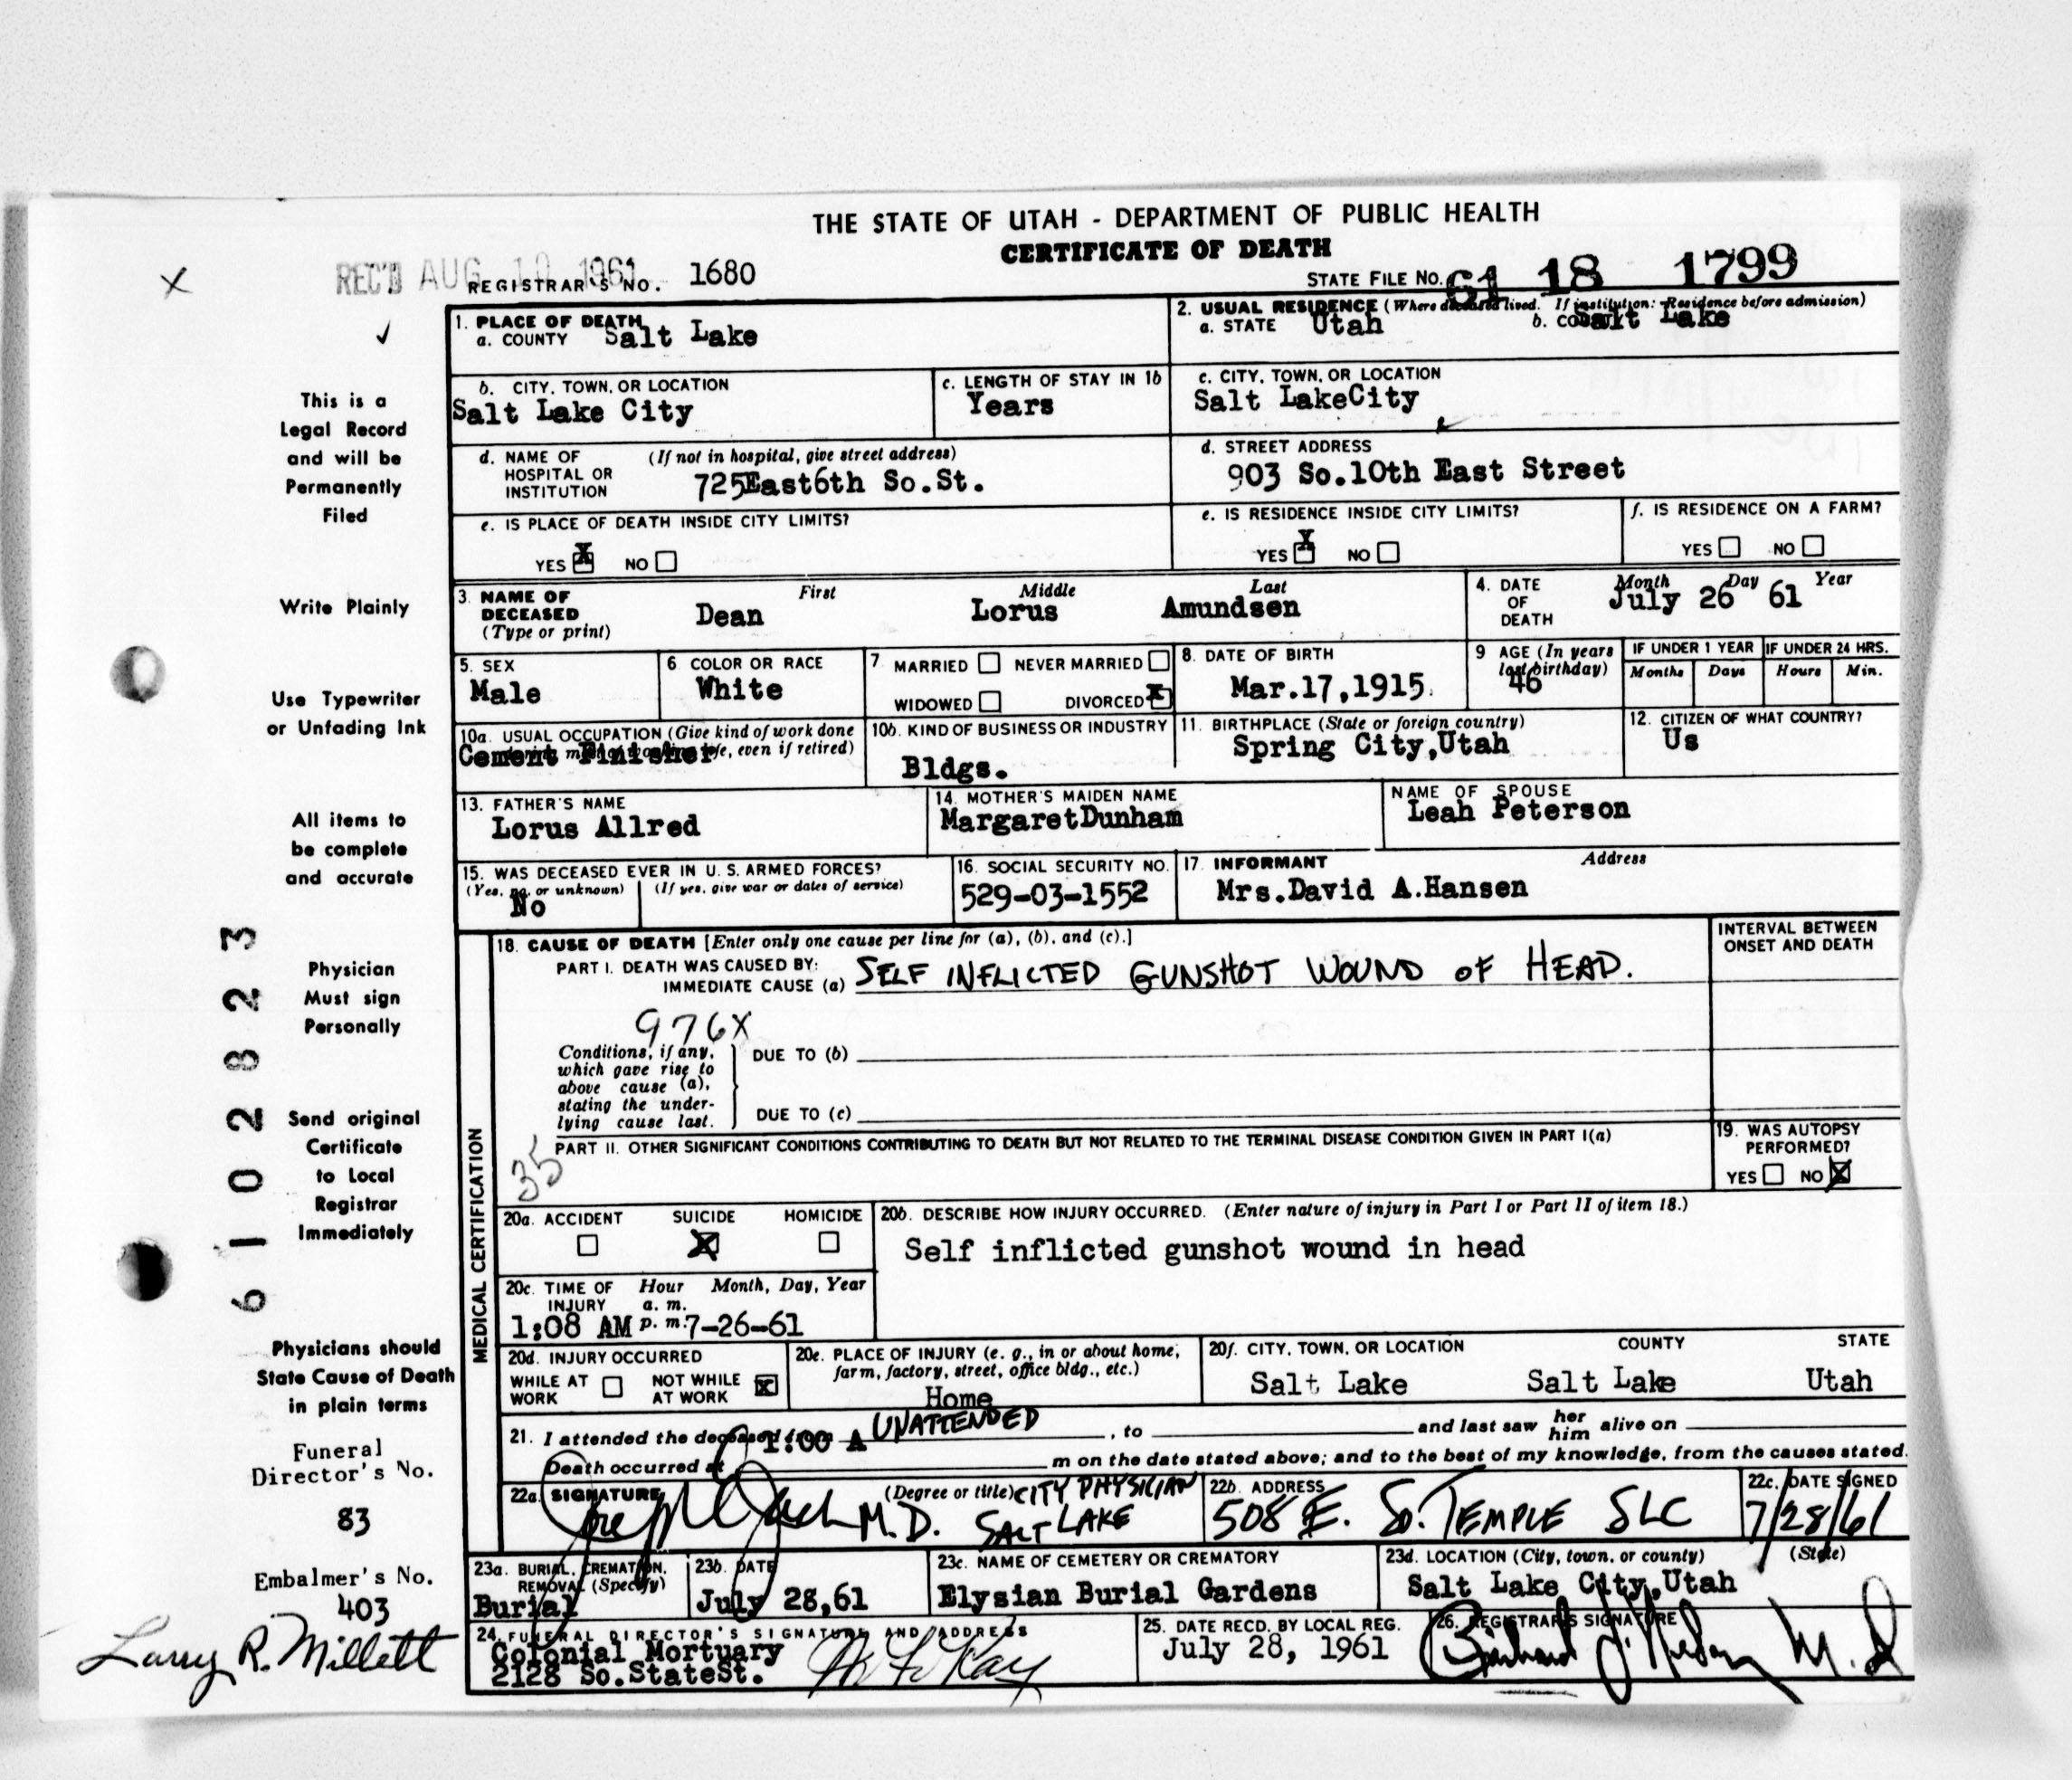 THE STATE OF UTAH - DEPARTMENT OF PUBLIC HEALTH
CERTIFICATE OF DEATH
REC'D AUG 10 1961
REGISTRAR'S NO. 1680
STATE FILE NO. 61 18 1799
1. PLACE OF DEATH
a. COUNTY Salt Lake
2. USUAL RESIDENCE (Where deceased lived. If institution: Residence before admission)
a. STATE Utah b. COUNTY Salt Lake
b. CITY, TOWN, OR LOCATION
Salt Lake City
c. LENGTH OF STAY IN 1b
Years
c. CITY, TOWN, OR LOCATION
Salt LakeCity
d. NAME OF HOSPITAL OR INSTITUTION (If not in hospital, give street address)
725East6th So.St.
d. STREET ADDRESS
903 So.10th East Street
e. IS PLACE OF DEATH INSIDE CITY LIMITS?
YES X NO
e. IS RESIDENCE INSIDE CITY LIMITS?
YES X NO
f. IS RESIDENCE ON A FARM?
YES NO
3. NAME OF DECEASED (Type or print)
First Middle Last
Dean Lorus Amundsen
4. DATE OF DEATH
Month Day Year
July 26 61
5. SEX
Male
6 COLOR OR RACE
White
7 MARRIED NEVER MARRIED
WIDOWED DIVORCED X
8. DATE OF BIRTH
Mar.17,1915.
9 AGE (In years last birthday)
46
IF UNDER 1 YEAR IF UNDER 24 HRS.
Months Days Hours Min.
10a. USUAL OCCUPATION (Give kind of work done during most of working life, even if retired)
Cement Finisher
10b. KIND OF BUSINESS OR INDUSTRY
Bldgs.
11. BIRTHPLACE (State or foreign country)
Spring City,Utah
12. CITIZEN OF WHAT COUNTRY?
Us
13. FATHER'S NAME
Lorus Allred
14. MOTHER'S MAIDEN NAME
MargaretDunham
NAME OF SPOUSE
Leah Peterson
15. WAS DECEASED EVER IN U. S. ARMED FORCES?
(Yes, no, or unknown) (If yes, give war or dates of service)
No
16. SOCIAL SECURITY NO.
529-03-1552
17. INFORMANT Address
Mrs.David A.Hansen
MEDICAL CERTIFICATION
18. CAUSE OF DEATH [Enter only one cause per line for (a), (b), and (c).]
INTERVAL BETWEEN ONSET AND DEATH
PART I. DEATH WAS CAUSED BY:
IMMEDIATE CAUSE (a) SELF INFLICTED GUNSHOT WOUND OF HEAD.
976X
Conditions, if any, which gave rise to above cause (a), stating the underlying cause last.
DUE TO (b)
DUE TO (c)
35
PART II. OTHER SIGNIFICANT CONDITIONS CONTRIBUTING TO DEATH BUT NOT RELATED TO THE TERMINAL DISEASE CONDITION GIVEN IN PART I(a)
19. WAS AUTOPSY PERFORMED?
YES NO X
20a. ACCIDENT SUICIDE HOMICIDE
X
20b. DESCRIBE HOW INJURY OCCURRED. (Enter nature of injury in Part I or Part II of item 18.)
Self inflicted gunshot wound in head
20c. TIME OF INJURY Hour Month, Day, Year
a. m.
1:08 AM p. m. 7-26-61
20d. INJURY OCCURRED
WHILE AT WORK NOT WHILE AT WORK X
20e. PLACE OF INJURY (e. g., in or about home, farm, factory, street, office bldg., etc.)
Home
20f. CITY, TOWN, OR LOCATION COUNTY STATE
Salt Lake Salt Lake Utah
21. I attended the deceased from UNATTENDED, to and last saw her him alive on
Death occurred at 1:00 A m on the date stated above; and to the best of my knowledge, from the causes stated.
22a. SIGNATURE (Degree or title)
M.D. CITY PHYSICIAN
SALT LAKE
22b. ADDRESS
508 E. So. TEMPLE SLC
22c. DATE SIGNED
7/28/61
23a. BURIAL, CREMATION, REMOVAL (Specify)
Burial
23b. DATE
July 28,61
23c. NAME OF CEMETERY OR CREMATORY
Elysian Burial Gardens
23d. LOCATION (City, town, or county) (State)
Salt Lake City,Utah
24. FUNERAL DIRECTOR'S SIGNATURE AND ADDRESS
Colonial Mortuary
2128 So.StateSt.
25. DATE RECD. BY LOCAL REG.
July 28, 1961
26. REGISTRAR'S SIGNATURE
M.D
X
This is a
Legal Record
and will be
Permanently
Filed
Write Plainly
Use Typewriter
or Unfading Ink
All items to
be complete
and accurate
Physician
Must sign
Personally
Send original
Certificate
to Local
Registrar
Immediately
Physicians should
State Cause of Death
in plain terms
Funeral
Director's No.
83
Embalmer's No.
403
Larry R. Millett
6102823